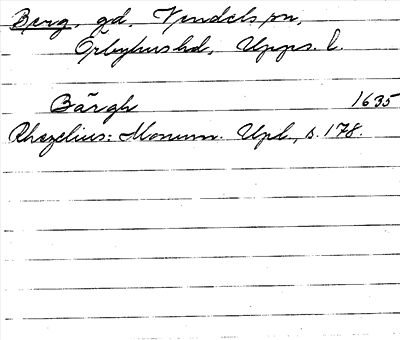 Berg, gd, Vendels sn,
Örbyhus hd, Upps. l.
Bärgh 1635
Rhezelius: Monum. Upl., s. 178.